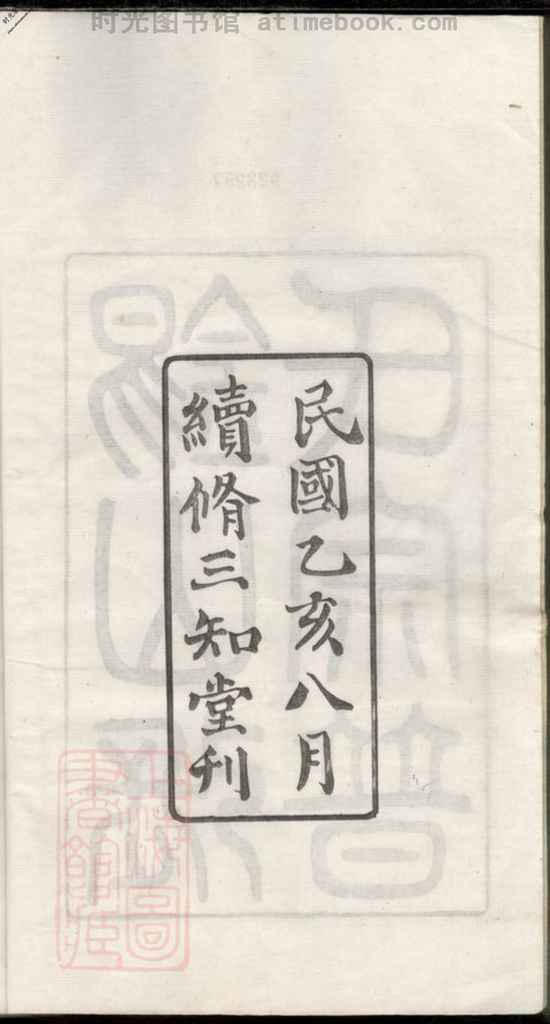 时光图书馆 atimebook.com
民國乙亥八月
續脩三知堂刊
上海圖
書館臧